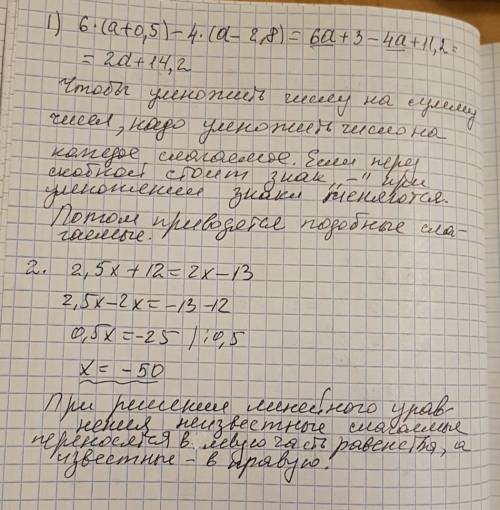 1) 6·(a+0,5)-4·(a-2,8)=6a+3-4a+11,2=
=2a+14,2
Чтобы умножить число на сумму
чисел, надо умножить число на
каждое слагаемое. Если перед
скобкой стоит знак „-" при
умножении знаки меняются.
Потом приводятся подобные сла-
гаемые.
2. 2,5x+12=2x-13
2,5x-2x=-13-12
0,5x=-25 /:0,5
x=-50
При решении линейного урав-
нения неизвестные слагаемые
переносятся в левую часть равенства, а
известные - в правую.